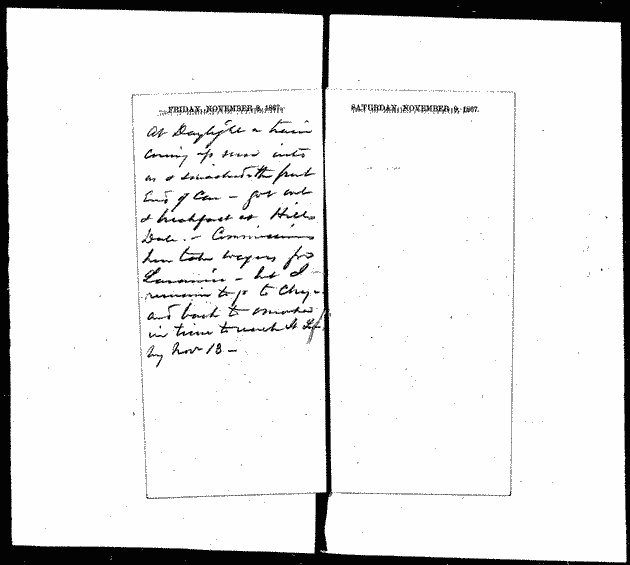 FRIDAY, NOVEMBER 8, 1867.
At Daylight a train
coming up runs into
us & smashed the front
End of Car - got out
& breakfast at Hills
Dale. - Commissioners
here take wagons for
Laramie - but I
remain to go to Chey-
and back to Omaha
in time to reach St
by Nov 13 -
SATURDAY, NOVEMBER 9, 1867.